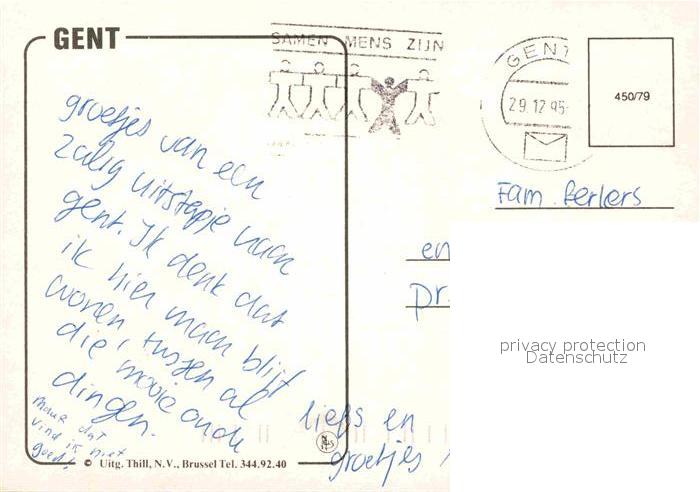 GENT
SAMEN MENS ZIJN
GENT
29.12.95
450/79
groetjes van een
zalig uitstapje naar
gent. Ik denk dat
ik hier maar blijf
wonen, tussen al
die mooie oude
dingen.
maar dat
vind ik niet
goed!
Fam.
en
pr.
liefs en
groetjes
© Uitg. Thill, N.V., Brussel Tel. 344.92.40
privacy protection
Datenschutz